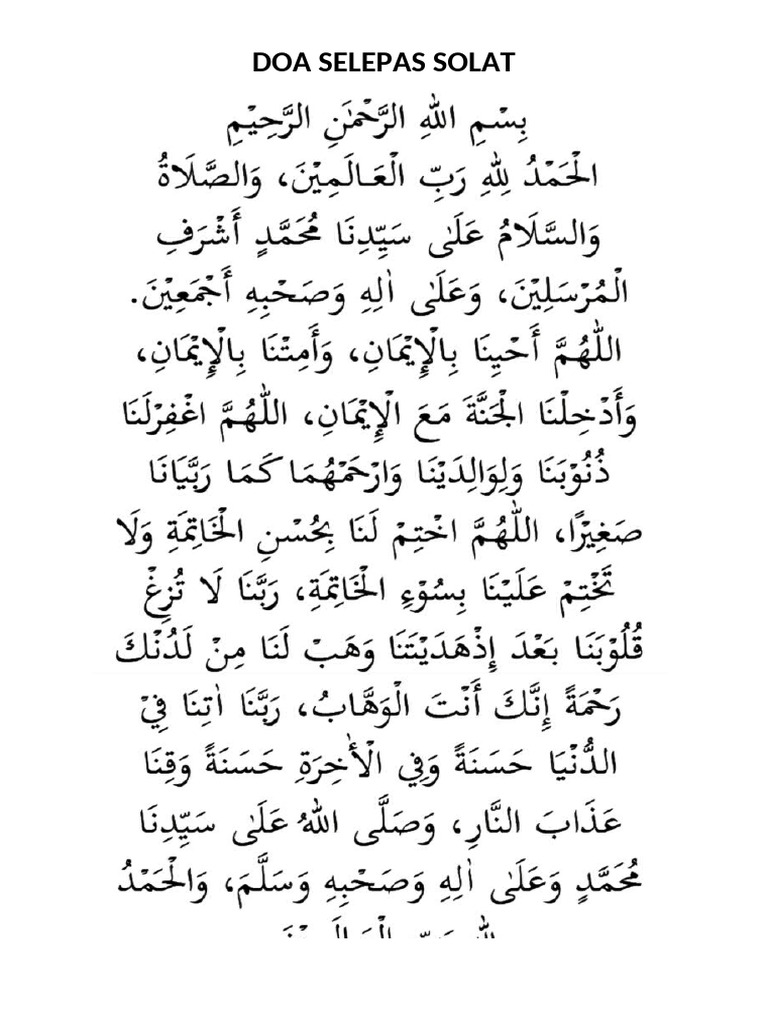 DOA SELEPAS SOLAT
بِسْمِ اللهِ الرَّحْمٰنِ الرَّحِيْمِ
الْحَمْدُ لِلّٰهِ رَبِّ الْعَالَمِيْنَ، وَالصَّلَاةُ
وَالسَّلَامُ عَلَىٰ سَيِّدِنَا مُحَمَّدٍ أَشْرَفِ
الْمُرْسَلِيْنَ، وَعَلَىٰ اٰلِهِ وَصَحْبِهِ أَجْمَعِيْنَ.
اللّٰهُمَّ أَحْيِنَا بِالْإِيْمَانِ، وَأَمِتْنَا بِالْإِيْمَانِ،
وَأَدْخِلْنَا الْجَنَّةَ مَعَ الْإِيْمَانِ، اللّٰهُمَّ اغْفِرْلَنَا
ذُنُوْبَنَا وَلِوَالِدَيْنَا وَارْحَمْهُمَا كَمَا رَبَّيَانَا
صَغِيْرًا، اللّٰهُمَّ اخْتِمْ لَنَا بِحُسْنِ الْخَاتِمَةِ وَلَا
تَخْتِمْ عَلَيْنَا بِسُوْءِ الْخَاتِمَةِ، رَبَّنَا لَا تُزِغْ
قُلُوْبَنَا بَعْدَ إِذْهَدَيْتَنَا وَهَبْ لَنَا مِنْ لَدُنْكَ
رَحْمَةً إِنَّكَ أَنْتَ الْوَهَّابُ، رَبَّنَا اٰتِنَا فِيْ
الدُّنْيَا حَسَنَةً وَفِي الْأٰخِرَةِ حَسَنَةً وَقِنَا
عَذَابَ النَّارِ، وَصَلَّى اللهُ عَلَىٰ سَيِّدِنَا
مُحَمَّدٍ وَعَلَىٰ اٰلِهِ وَصَحْبِهِ وَسَلَّمَ، وَالْحَمْدُ